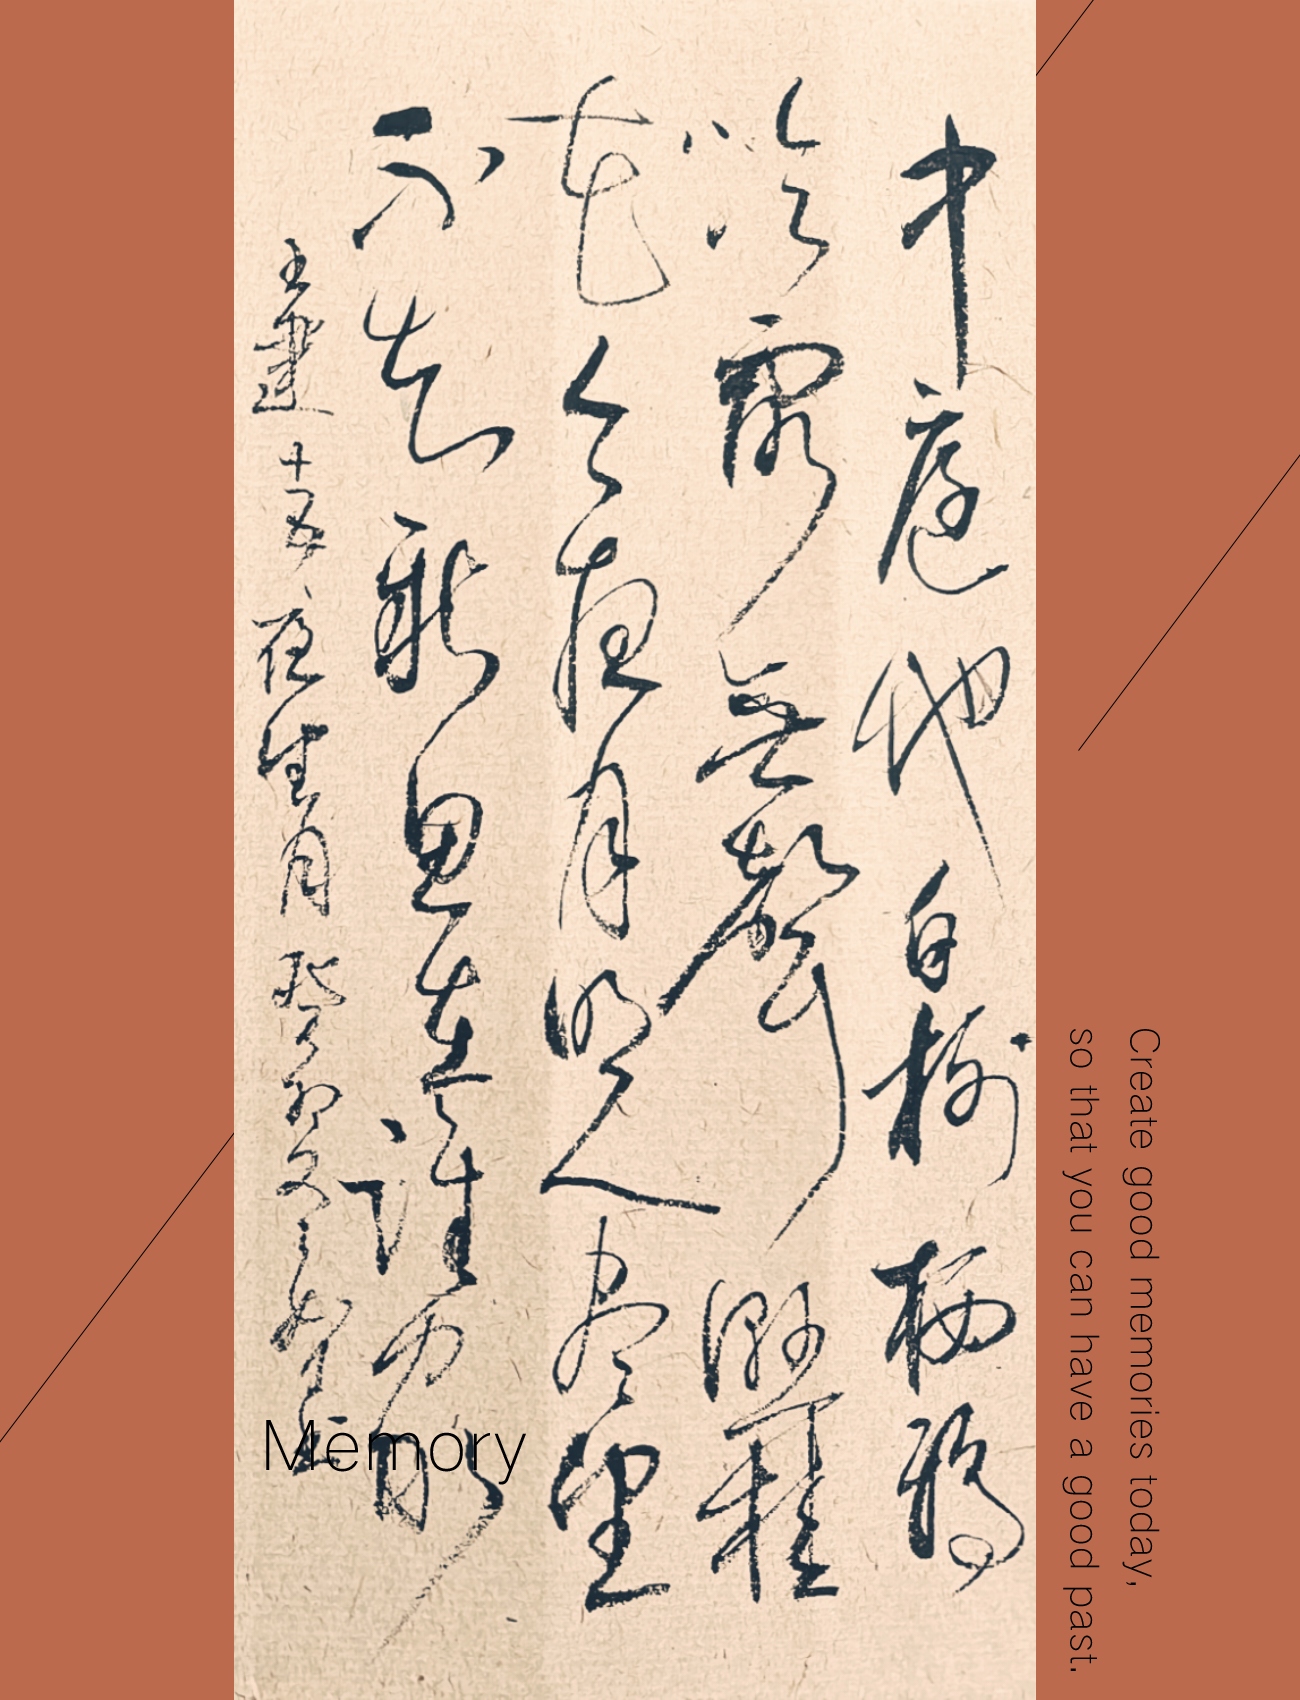 中庭地白樹栖鴉
冷露無聲濕桂
花今夜月明人盡望
不知秋思在誰家
王建十五夜望月癸卯
Memory
Create good memories today,
so that you can have a good past.